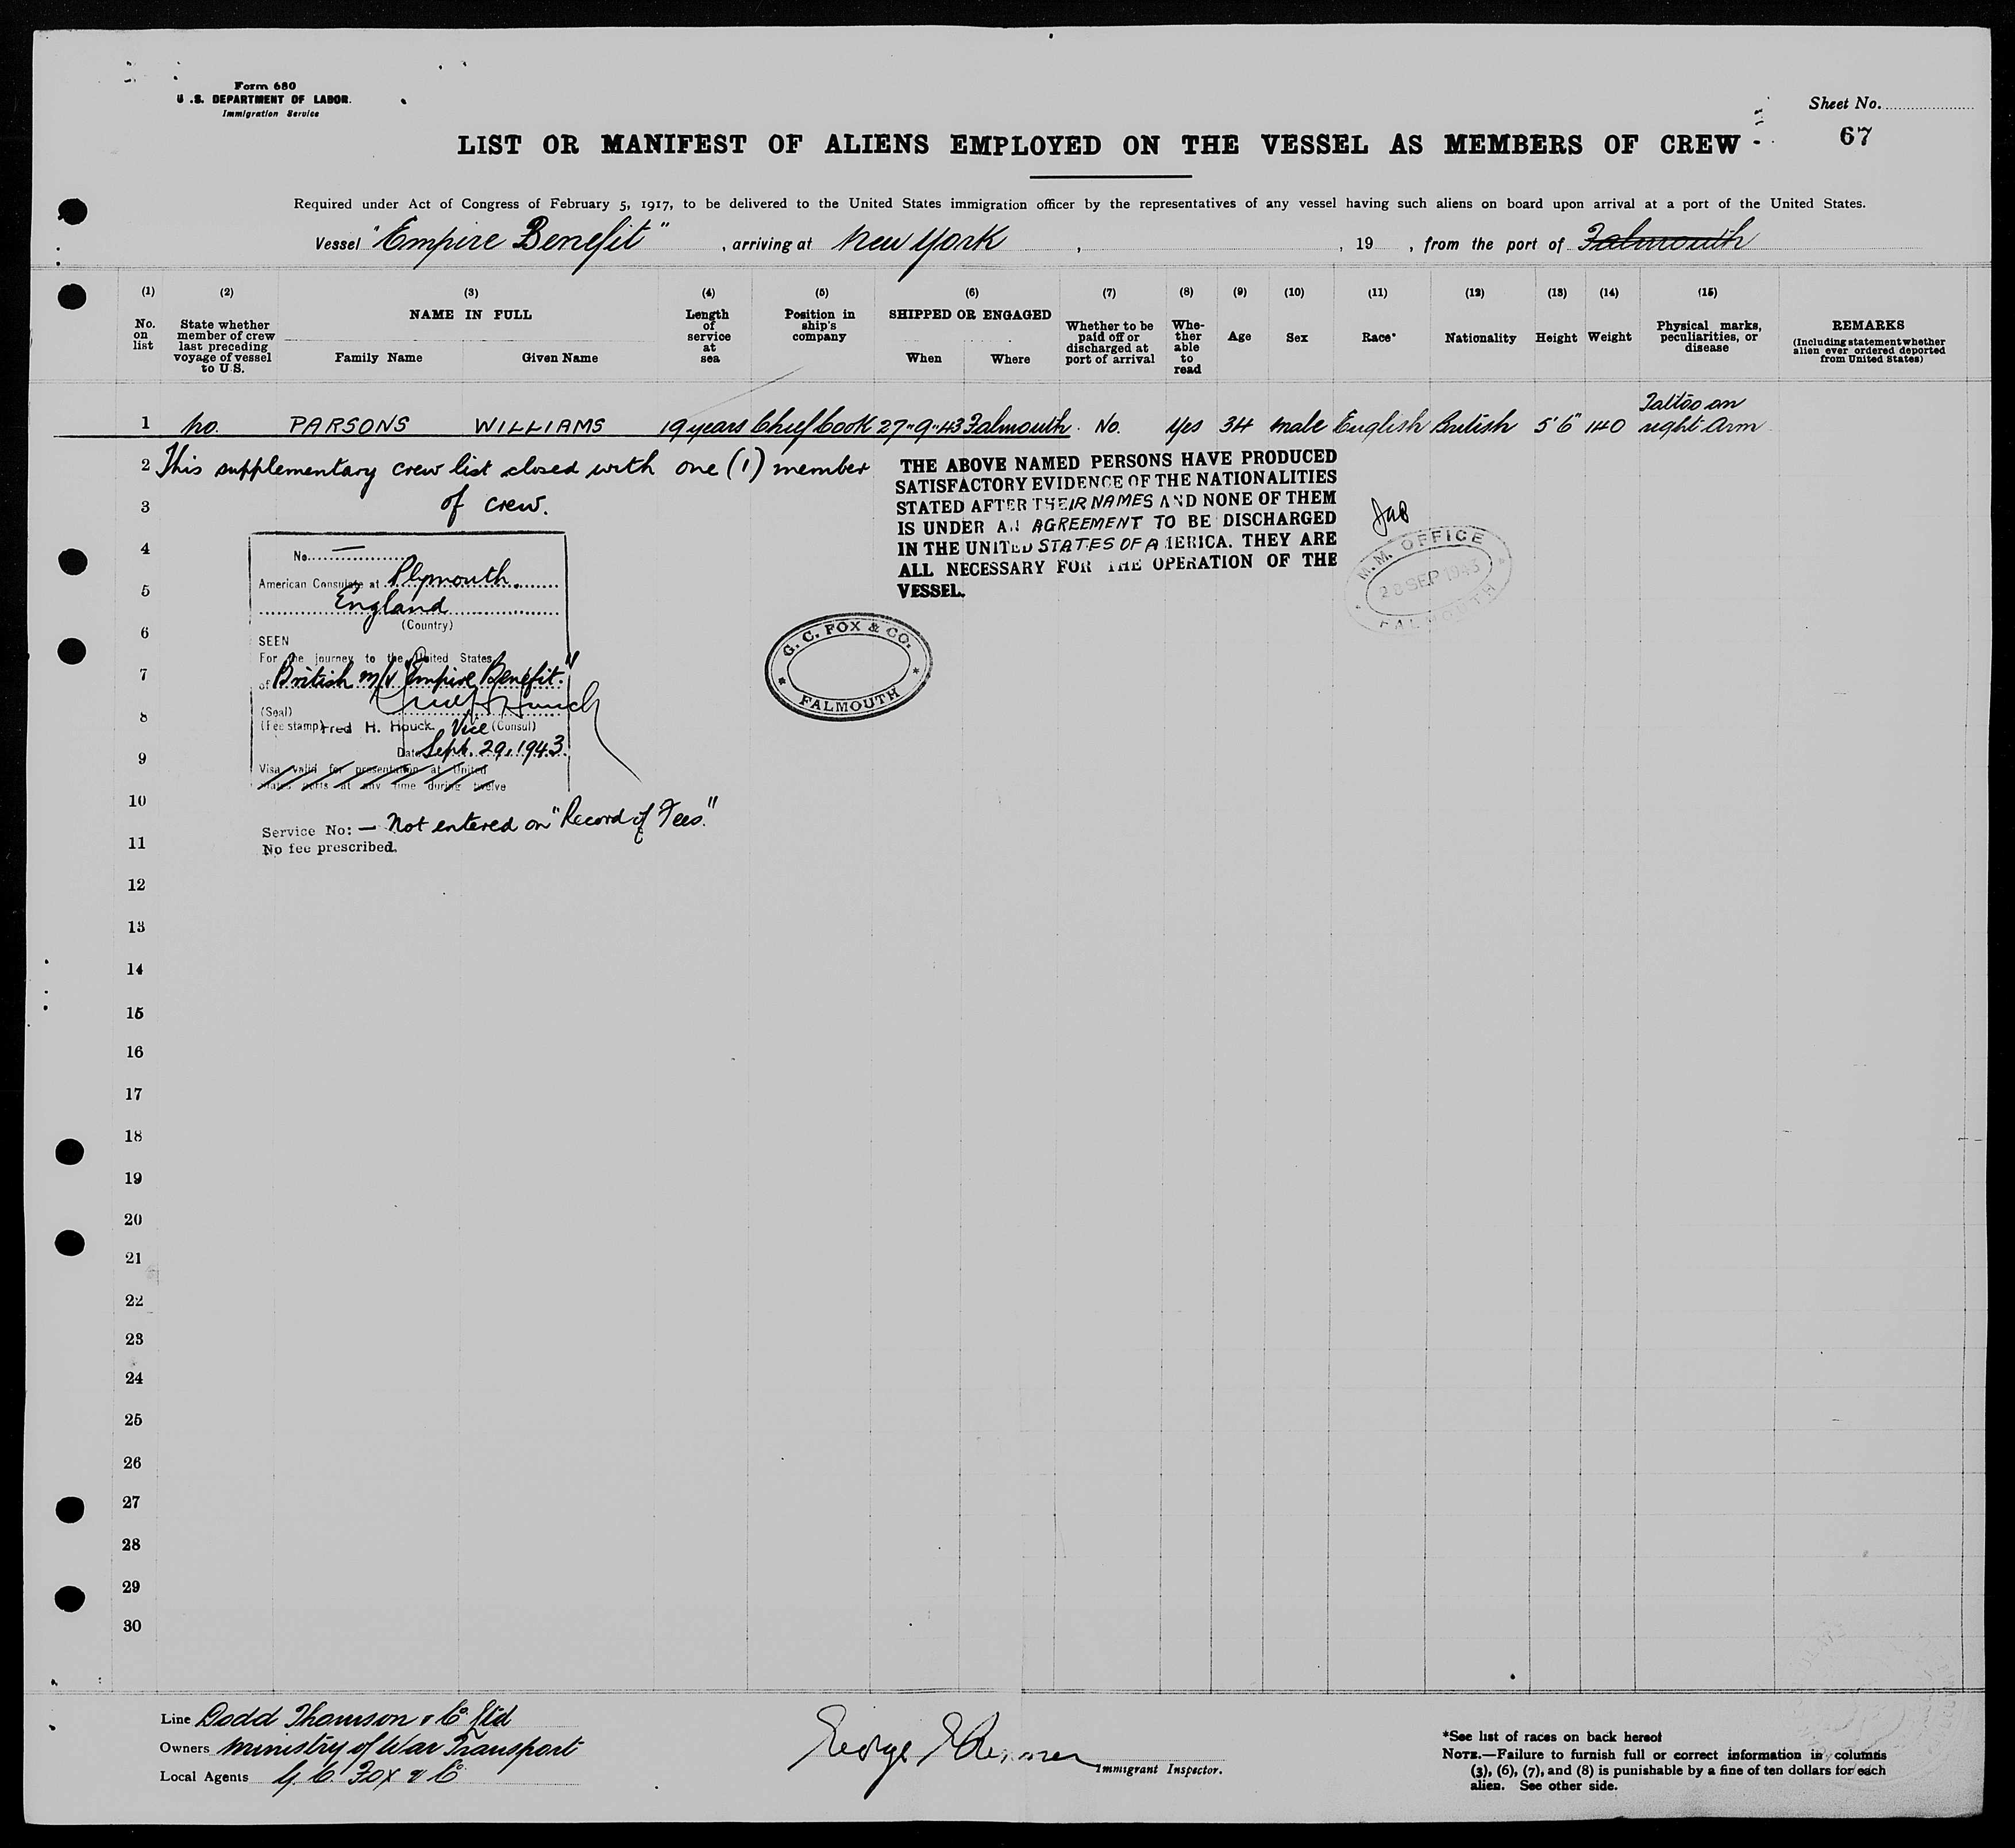 Form 680
U.S. DEPARTMENT OF LABOR.
Immigration Service
Sheet No.
67
LIST OR MANIFEST OF ALIENS EMPLOYED ON THE VESSEL AS MEMBERS OF CREW
Required under Act of Congress of February 5, 1917, to be delivered to the United States immigration officer by the representatives of any vessel having such aliens on board upon arrival at a port of the United States.
Vessel "Empire Benefit", arriving at New York, , 19 , from the port of Falmouth
(1) (2) (3) (4) (5) (6) (7) (8) (9) (10) (11) (12) (13) (14) (15)
No. on list
State whether member of crew last preceding voyage of vessel to U.S.
NAME IN FULL
Family Name Given Name
Length of service at sea
Position in ship's company
SHIPPED OR ENGAGED
When Where
Whether to be paid off or discharged at port of arrival
Whether able to read
Age
Sex
Race*
Nationality
Height
Weight
Physical marks, peculiarities, or disease
REMARKS
(Including statement whether alien ever ordered deported from United States)
1 No. PARSONS WILLIAMS 19 years Chief Cook 27"9"43 Falmouth. No. Yes 34 male English British 5'6" 140 Tattoo on right Arm
2 This supplementary crew list closed with one (1) member
3 of crew.
THE ABOVE NAMED PERSONS HAVE PRODUCED
SATISFACTORY EVIDENCE OF THE NATIONALITIES
STATED AFTER THEIR NAMES AND NONE OF THEM
IS UNDER AN AGREEMENT TO BE DISCHARGED
IN THE UNITED STATES OF AMERICA. THEY ARE
ALL NECESSARY FOR THE OPERATION OF THE
VESSEL.
M.M. OFFICE
28 SEP 1943
FALMOUTH
G. C. FOX & CO.
FALMOUTH
4
5
6
7
8
9
10
11
No. —
American Consulate at Plymouth.
England
(Country)
SEEN
For the journey to the United States
of British m/v "Empire Benefit."
(Seal)
(Fee stamp) Fred H. Houck. Vice (Consul)
Date Sept. 29, 1943.
Visa valid for presentation at United
States ports at any time during twelve
Service No: — Not entered on "Record of Fees."
No fee prescribed.
12
13
14
15
16
17
18
19
20
21
22
23
24
25
26
27
28
29
30
Line Dodd Thomson & Co. Ltd
Owners Ministry of War Transport
Local Agents G. C. Fox & Co
George
Immigrant Inspector.
*See list of races on back hereof
NOTE.—Failure to furnish full or correct information in columns
(3), (6), (7), and (8) is punishable by a fine of ten dollars for each
alien. See other side.